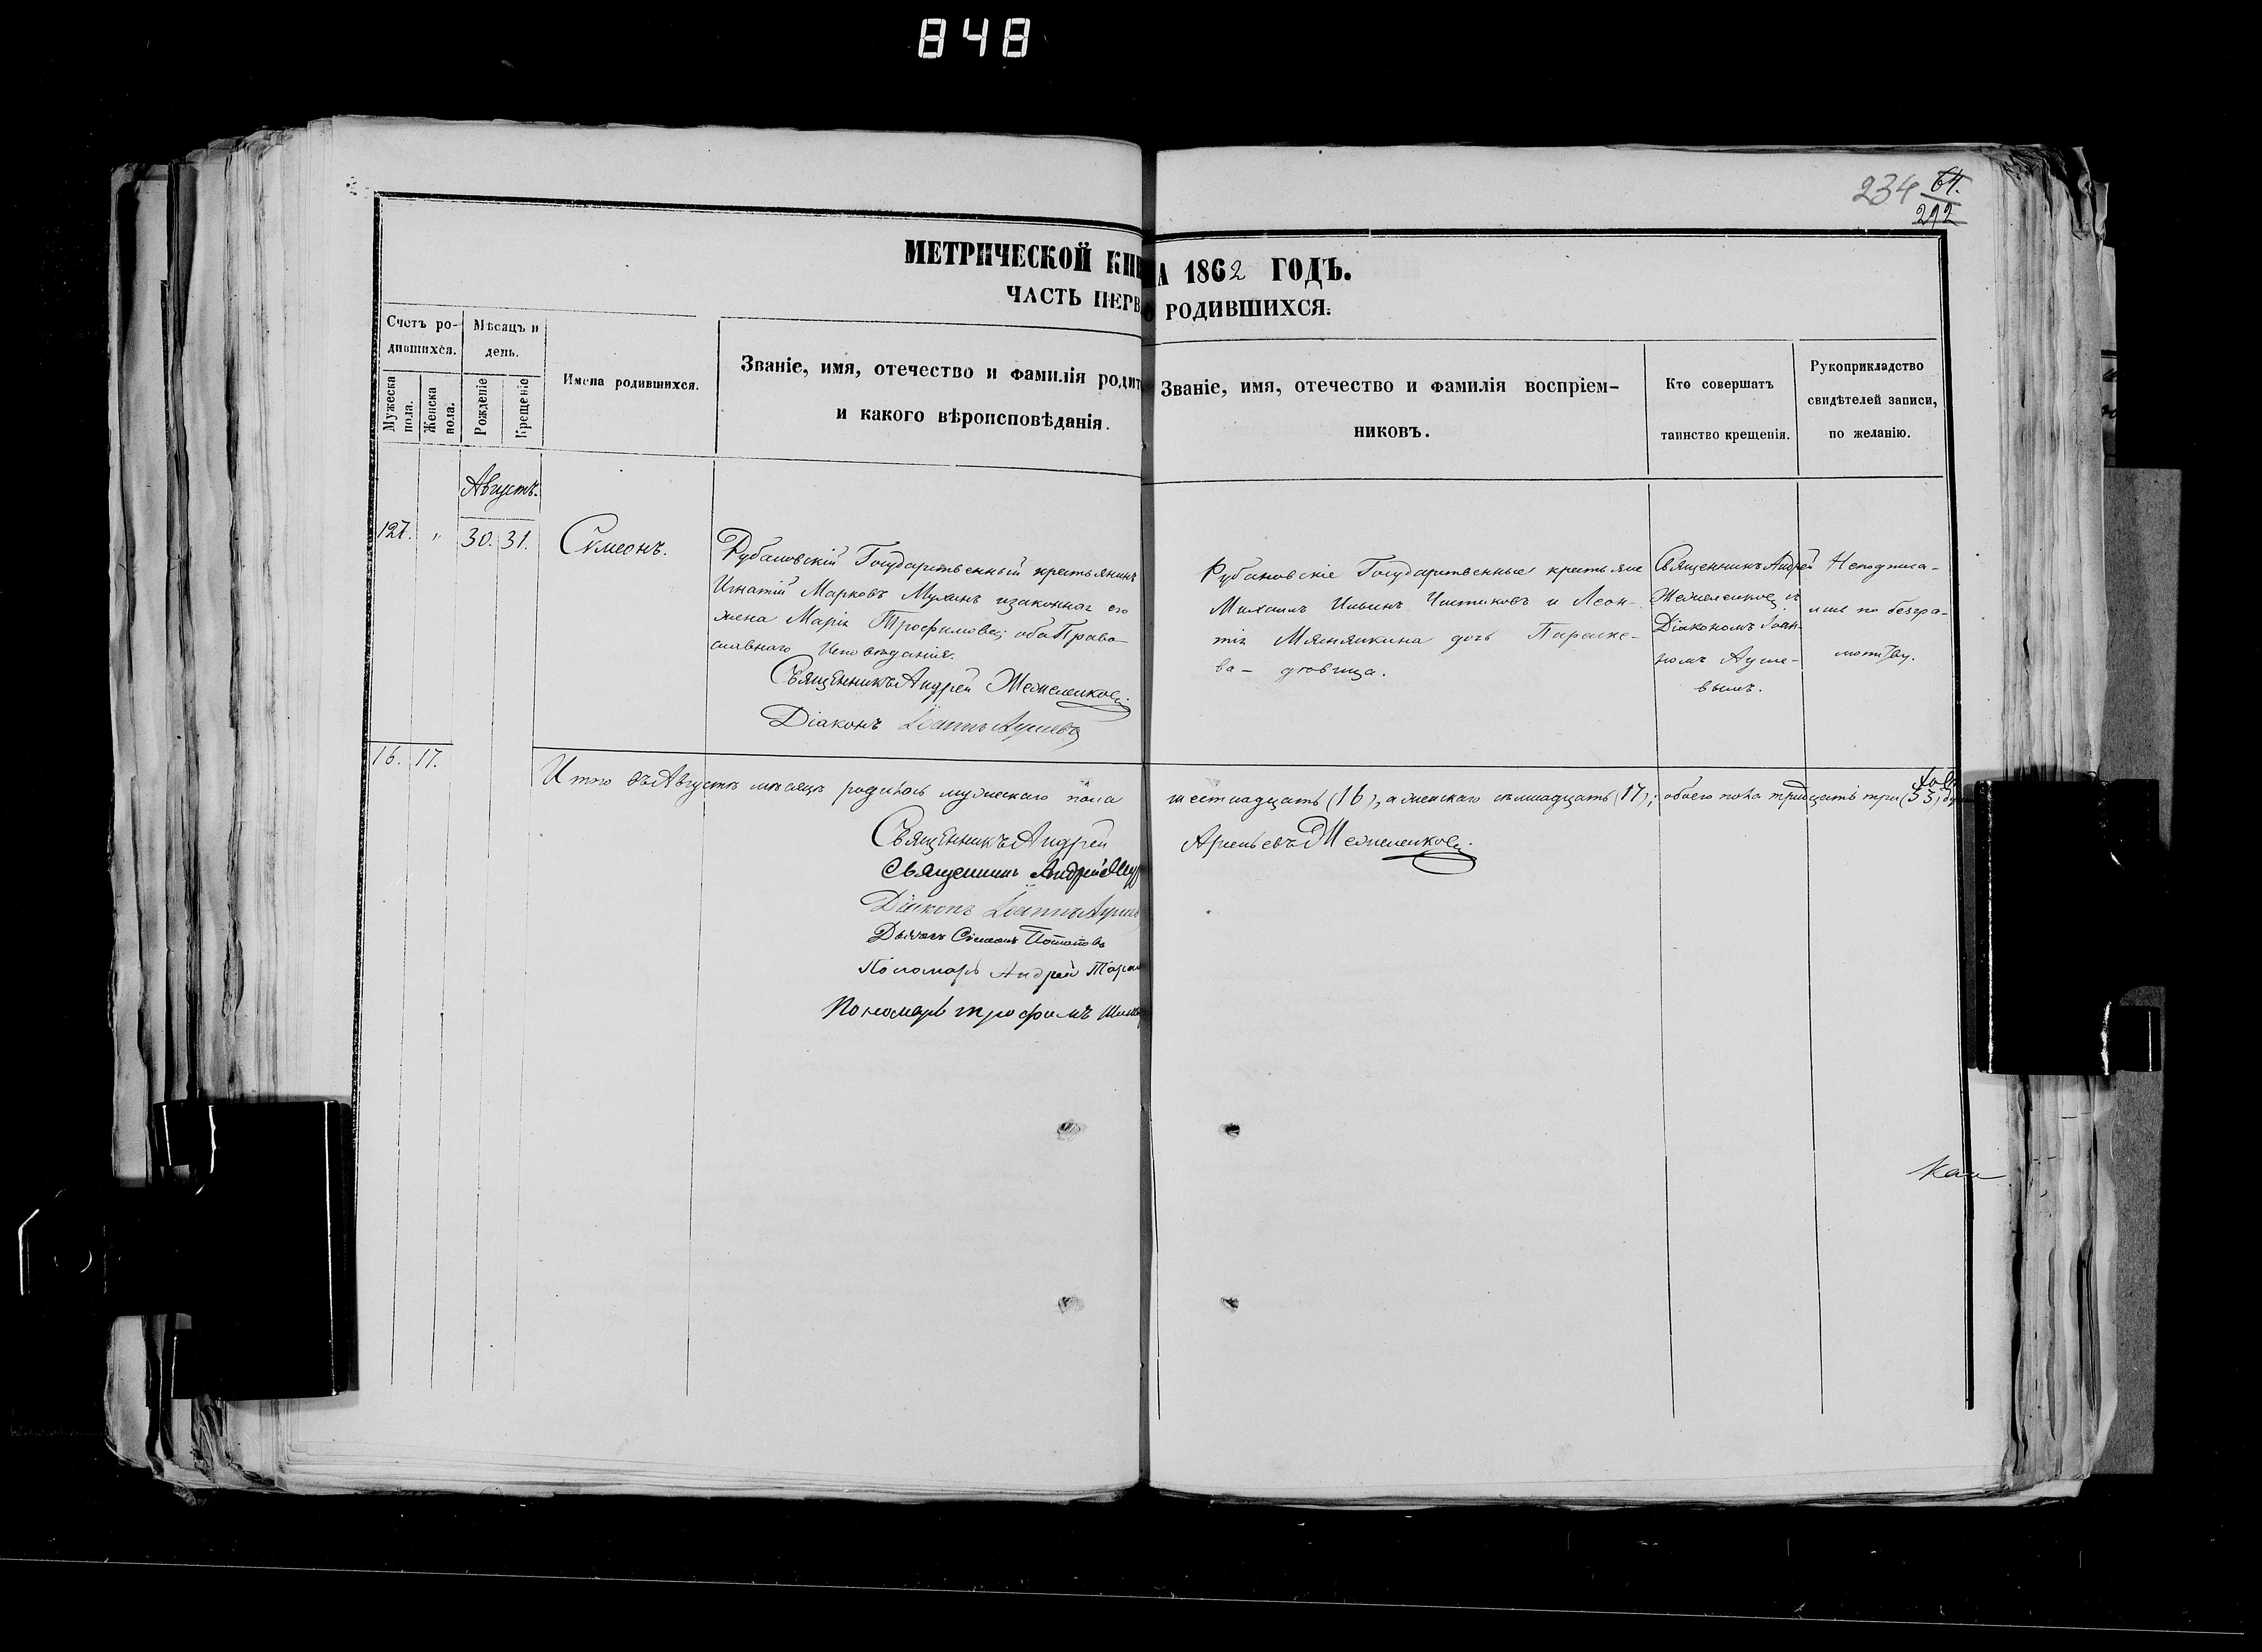 848
234 64.
292
МЕТРИЧЕСКОЙ КНИ А 1862 ГОДЪ.
ЧАСТЬ ПЕРВ О РОДИВШИХСЯ.
Счетъ ро-
дившихся.
Мужеска
пола.
Женска
пола.
Мѣсяцъ и
день.
Рожденіе
Крещеніе
Имена родившихся.
Званіе, имя, отечество и фамилія родит
и какого вѣроисповѣданія.
Званіе, имя, отечество и фамилія воспріем-
никовъ.
Кто совершатъ
таинство крещенія.
Рукоприкладство
свидѣтелей записи,
по желанію.
Августъ.
127. " 30. 31.
Сѵмеонъ.
Рубановскій Государственный крестьянинъ
Игнатій Марковъ Мухинъ изаконная его
жена Марія Трофимова; оба Право-
славнаго Исповѣданія.
Священникъ Андрей
Діаконъ Іоаннъ
Рубановскіе Государственные крестьяне
Михаилъ Ильинъ Чистиковъ и Леон-
тія дочь Параске-
ва - девица.
Священникъ Андрей
съ
Діакономъ Іоан-
номъ
вымъ.
Неподписа-
лись по безгра-
мотству.
16. 17.
Итого въ Августѣ мѣсяцѣ родилось мужескаго пола шестнадцать (16), а женскаго семнадцать (17); обоего пола тридцать три (33)
Священникъ Андрей Арсеньевъ
Священникъ Андрей
Діаконъ Іоаннъ
Дьячокъ Сѵмеонъ Потаповъ
Пономарь Андрей
Пономарь трофимъ